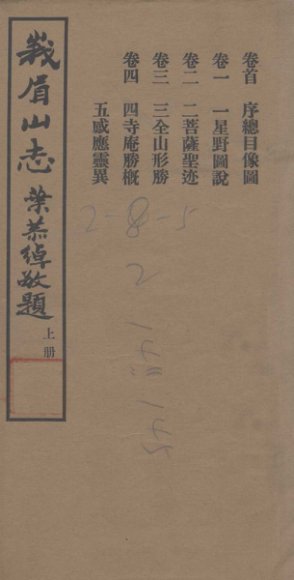 卷首 序總目像圖
卷一 一星野圖說
卷二 二菩薩聖迹
卷三 三全山形勝
卷四 四寺庵勝概
五感應靈異
峩眉山志 葉恭綽敬題 上册
2-8-5
2